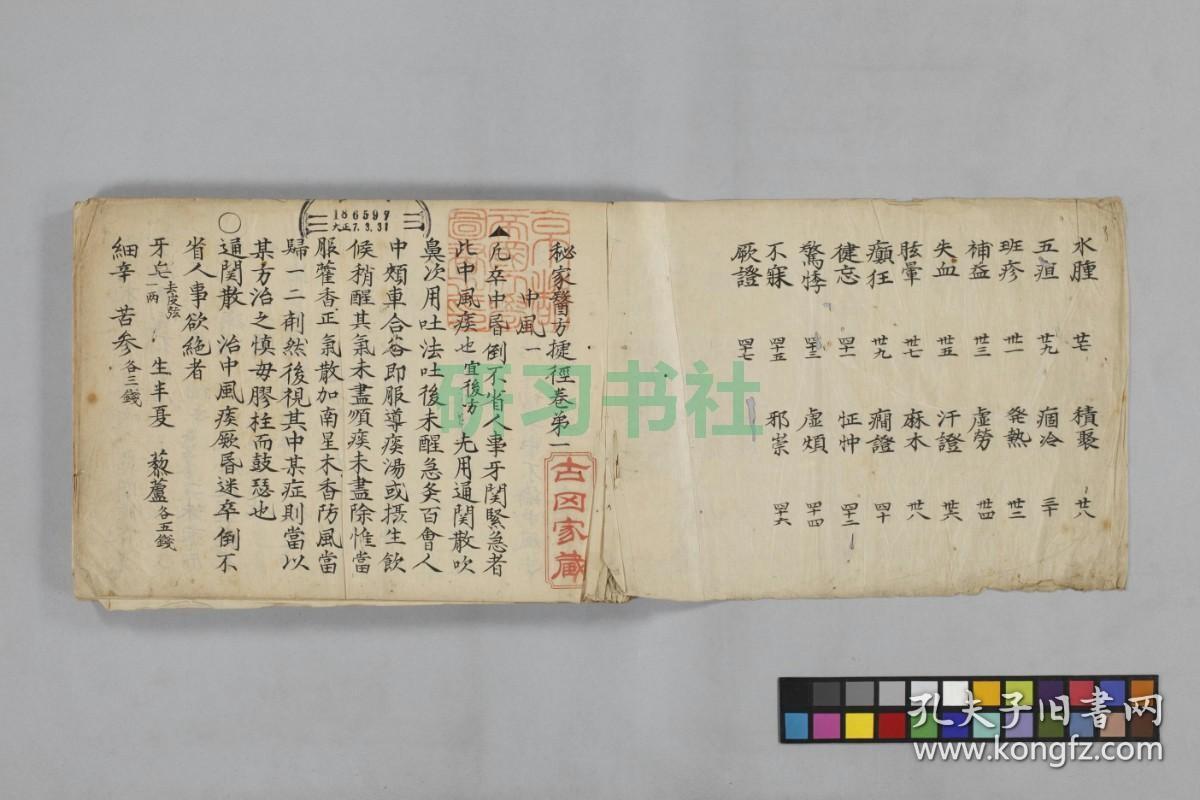 水腫 廿七 積聚 廿八
五疸 廿九 痼冷 三十
班疹 卅一 発熱 卅二
補益 卅三 虚勞 卅四
失血 卅五 汗證 卅六
眩暈 卅七 麻木 卅八
癲狂 卅九 癇證 四十
健忘 四十一 怔忡 四十二
驚悸 四十三 虚煩 四十四
不寐 四十五 邪祟 四十六
厥證 四十七
秘家醫方捷徑卷第一
中風一
▲凡卒中昏倒不省人事牙関緊急者
此中風痰也宜後方先用通関散吹
鼻次用吐法吐後未醒急灸百會人
中頰車合谷即服導痰湯或摂生飲
候稍醒其氣未盡順痰未盡除惟當
服藿香正氣散加南星木香防風當
歸一二剤然後視其中某症則當以
某方治之慎毋膠柱而鼓瑟也
○通関散 治中風痰厥昏迷卒倒不
省人事欲絶者
牙皂去皮弦一两 生半夏 藜蘆各五錢
細辛 苦參各三錢
古冈家藏
186597
大正7.3.31
研习书社
孔夫子旧书网
www.kongfz.com